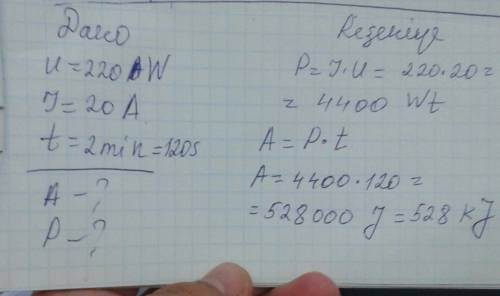 Dano
U=220 W
I=20A
t=2min=120s
A-?
P-?
Rezenige
P=I·U=220·20=
=4400 Wt
A=P·t
A=4400·120=
=528000 J=528 kJ